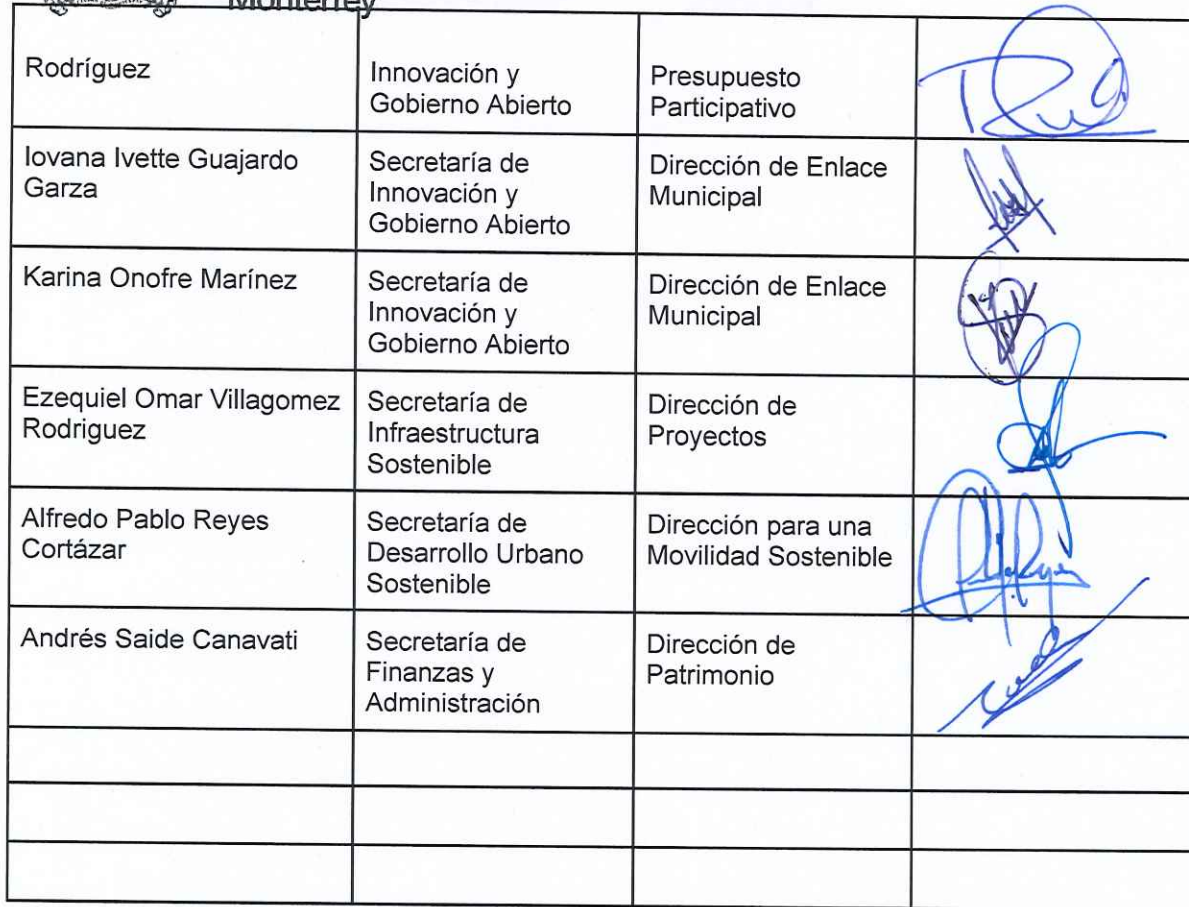 Monterrey
Rodríguez
Innovación y
Gobierno Abierto
Presupuesto
Participativo
Iovana Ivette Guajardo
Garza
Secretaría de
Innovación y
Gobierno Abierto
Dirección de Enlace
Municipal
Karina Onofre Marínez
Secretaría de
Innovación y
Gobierno Abierto
Dirección de Enlace
Municipal
Ezequiel Omar Villagomez
Rodriguez
Secretaría de
Infraestructura
Sostenible
Dirección de
Proyectos
Alfredo Pablo Reyes
Cortázar
Secretaría de
Desarrollo Urbano
Sostenible
Dirección para una
Movilidad Sostenible
Andrés Saide Canavati
Secretaría de
Finanzas y
Administración
Dirección de
Patrimonio